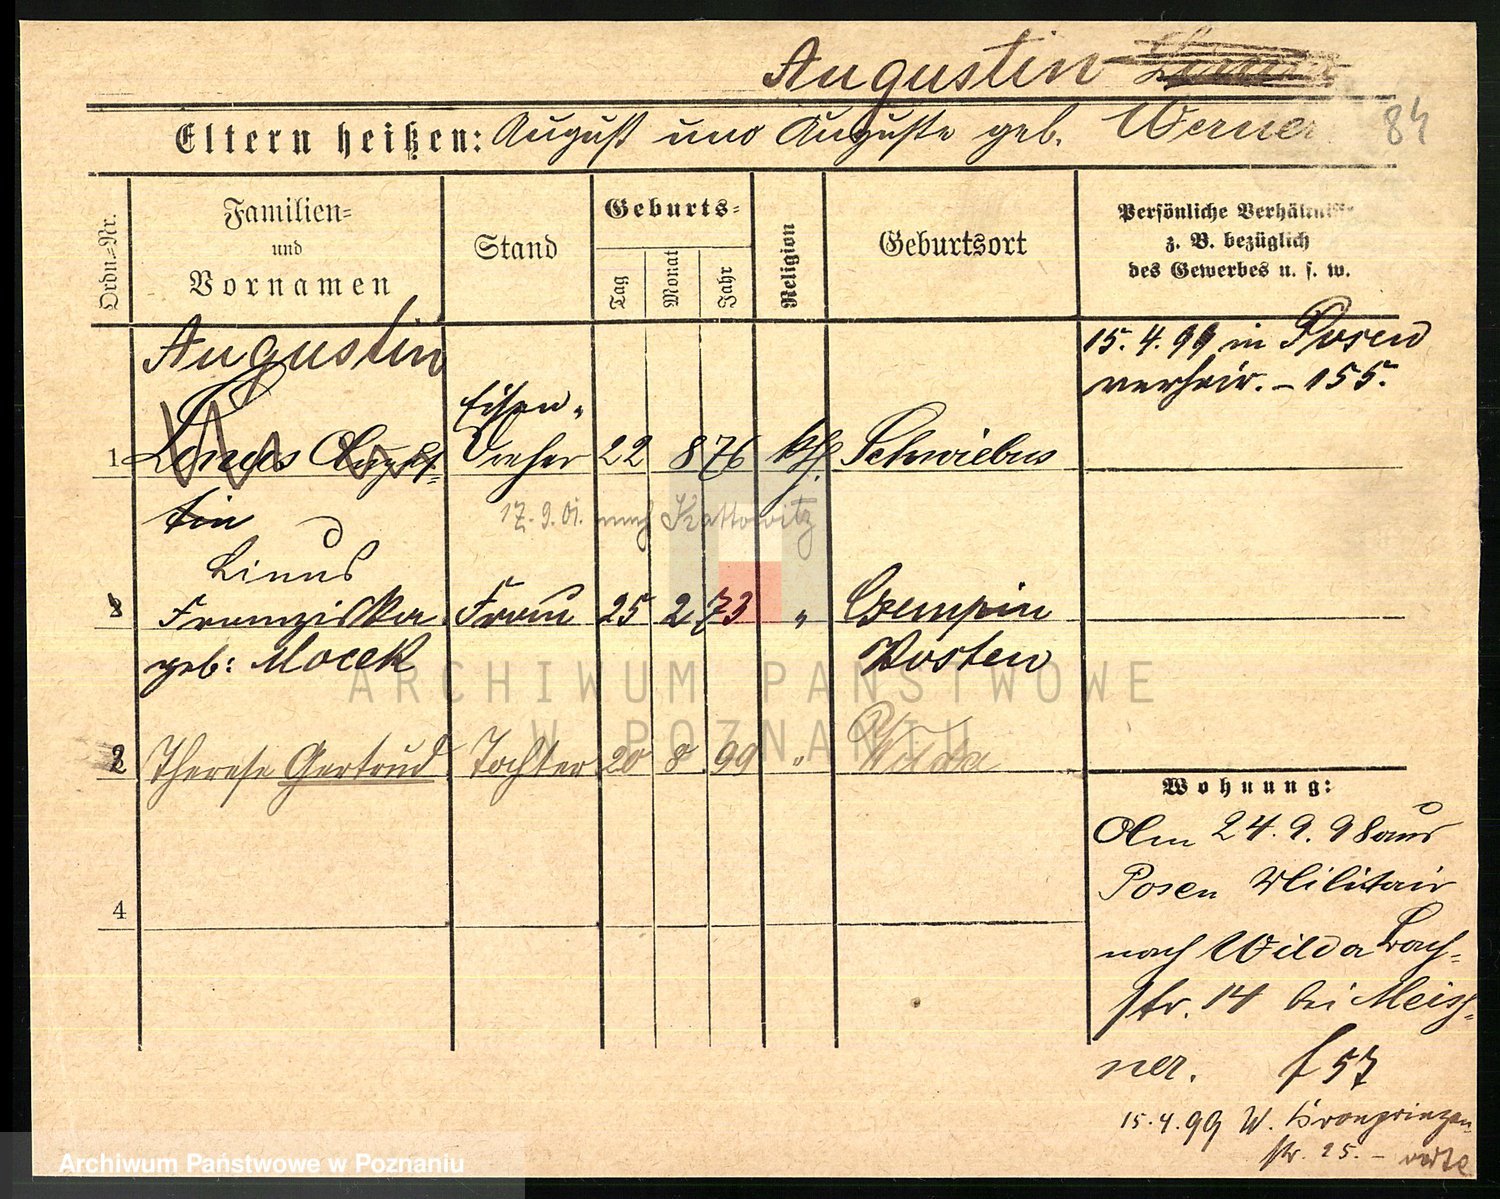 Augustin
Eltern heißen: August und Auguste geb. Werner 84
Ordn.=Nr.
Familien=
und
Vornamen
Stand
Geburts=
Tag
Monat
Jahr
Religion
Geburtsort
Persönliche Verhältnisse
z. B. bezüglich
des Gewerbes u. s. w.
Augustin
15. 4. 99 in Posen
verheir. - 155.
Eisen-
1 Linus August- dreher 22 8 76 kth. Schwiebus
tin
17. 9. 01. nach Kattowitz
Linus
Franziska Frau 25 2 73 " Czempin
geb: Mocek Kosten
2 Therese Gertrud Tochter 20 8 99 " Wilda
Wohnung:
Am 24. 9. 98 aus
Posen Militair
nach Wilda Bach-
str. 14 bei Meisz-
ner. f 57
15. 4. 99 W. Kronprinzen-
str. 25. -
4
ARCHIWUM PAŃSTWOWE
W POZNANIU
Archiwum Państwowe w Poznaniu